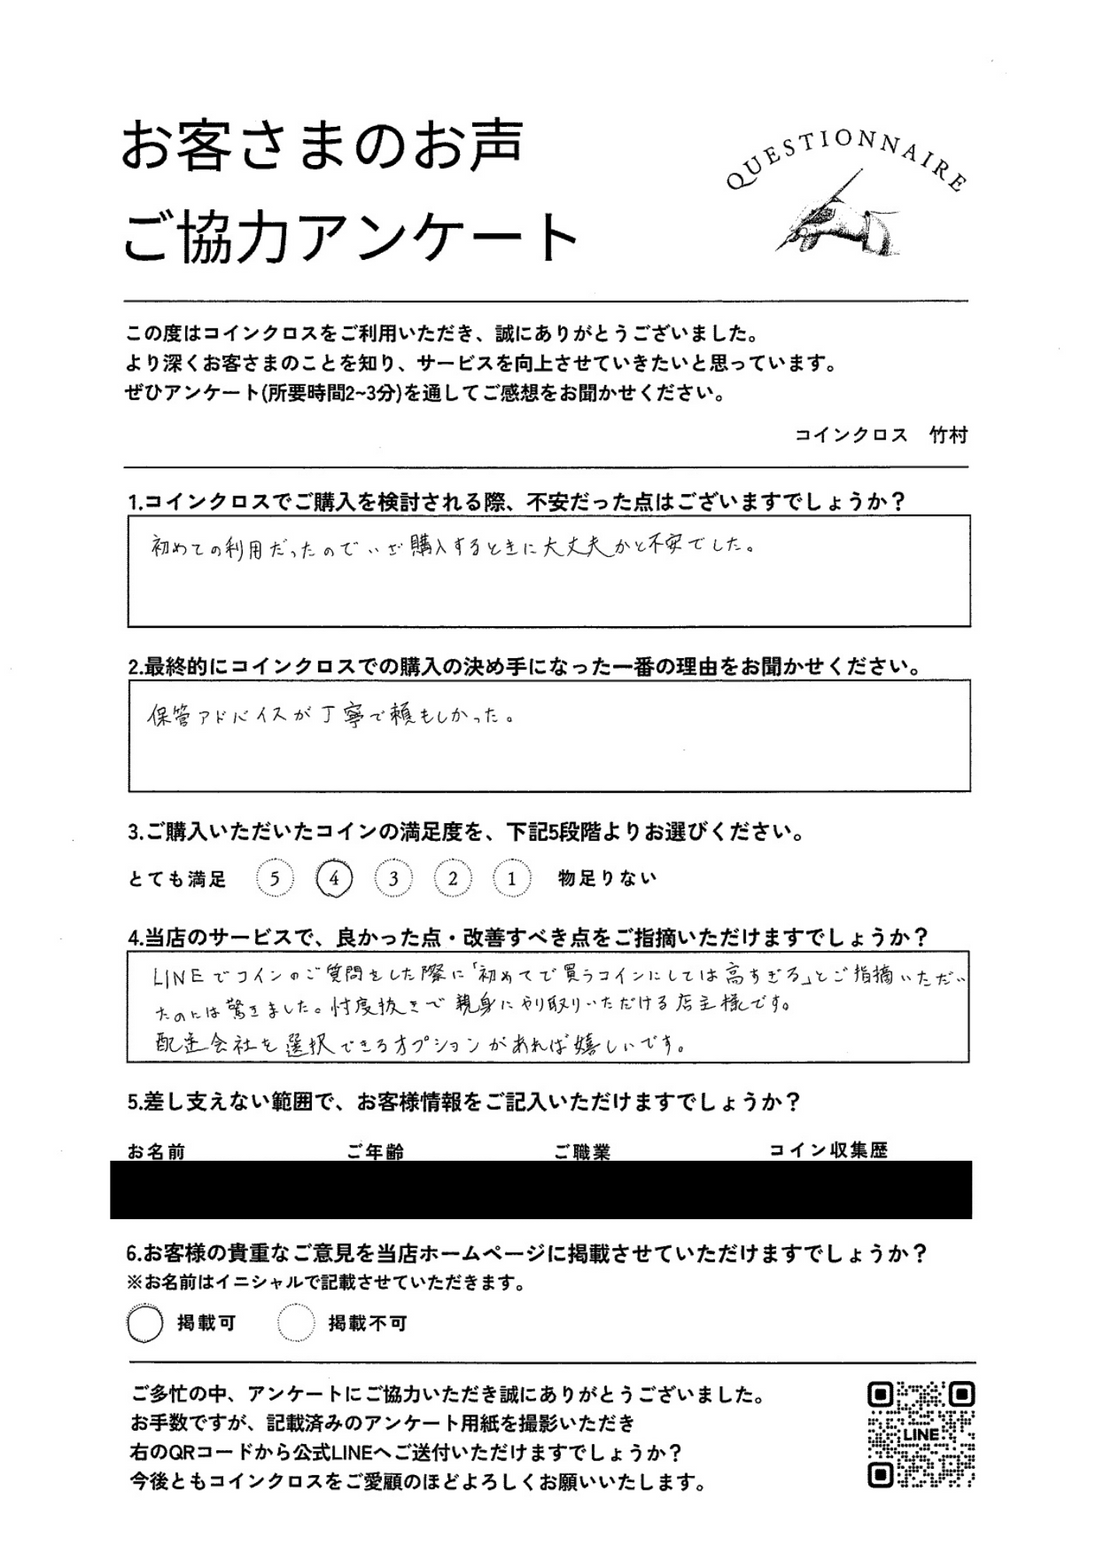 お客さまのお声
ご協力アンケート
QUESTIONNAIRE
この度はコインクロスをご利用いただき、誠にありがとうございました。
より深くお客さまのことを知り、サービスを向上させていきたいと思っています。
ぜひアンケート(所要時間2~3分)を通してご感想をお聞かせください。
コインクロス 竹村
1.コインクロスでご購入を検討される際、不安だった点はございますでしょうか？
初めての利用だったのでいざ購入するときに大丈夫かと不安でした。
2.最終的にコインクロスでの購入の決め手になった一番の理由をお聞かせください。
保管アドバイスが丁寧で頼もしかった。
3.ご購入いただいたコインの満足度を、下記5段階よりお選びください。
とても満足 5 4 3 2 1 物足りない
4.当店のサービスで、良かった点・改善すべき点をご指摘いただけますでしょうか？
LINEでコインのご質問をした際に「初めてで買うコインにしては高すぎる」とご指摘いただい
たのには驚きました。忖度抜きで親身にやり取りいただける店主様です。
配送会社を選択できるオプションがあれば嬉しいです。
5.差し支えない範囲で、お客様情報をご記入いただけますでしょうか？
お名前 ご年齢 ご職業 コイン収集歴
6.お客様の貴重なご意見を当店ホームページに掲載させていただけますでしょうか？
※お名前はイニシャルで記載させていただきます。
掲載可 掲載不可
ご多忙の中、アンケートにご協力いただき誠にありがとうございました。
お手数ですが、記載済みのアンケート用紙を撮影いただき
右のQRコードから公式LINEへご送付いただけますでしょうか？
今後ともコインクロスをご愛顧のほどよろしくお願いいたします。
LINE